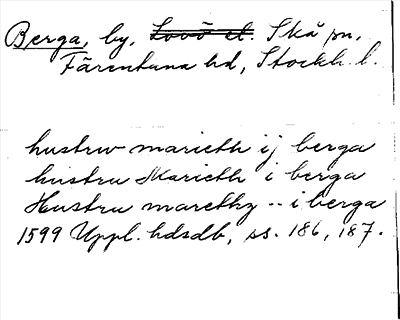 Berga, by, Lovö el. Skå sn,
Färentuna hd, Stockh. l.
hustrw marieth ij berga
hustru Marieth i berga
Hustru marethz -- i berga
1599 Uppl. hdsdb, ss. 186, 187.